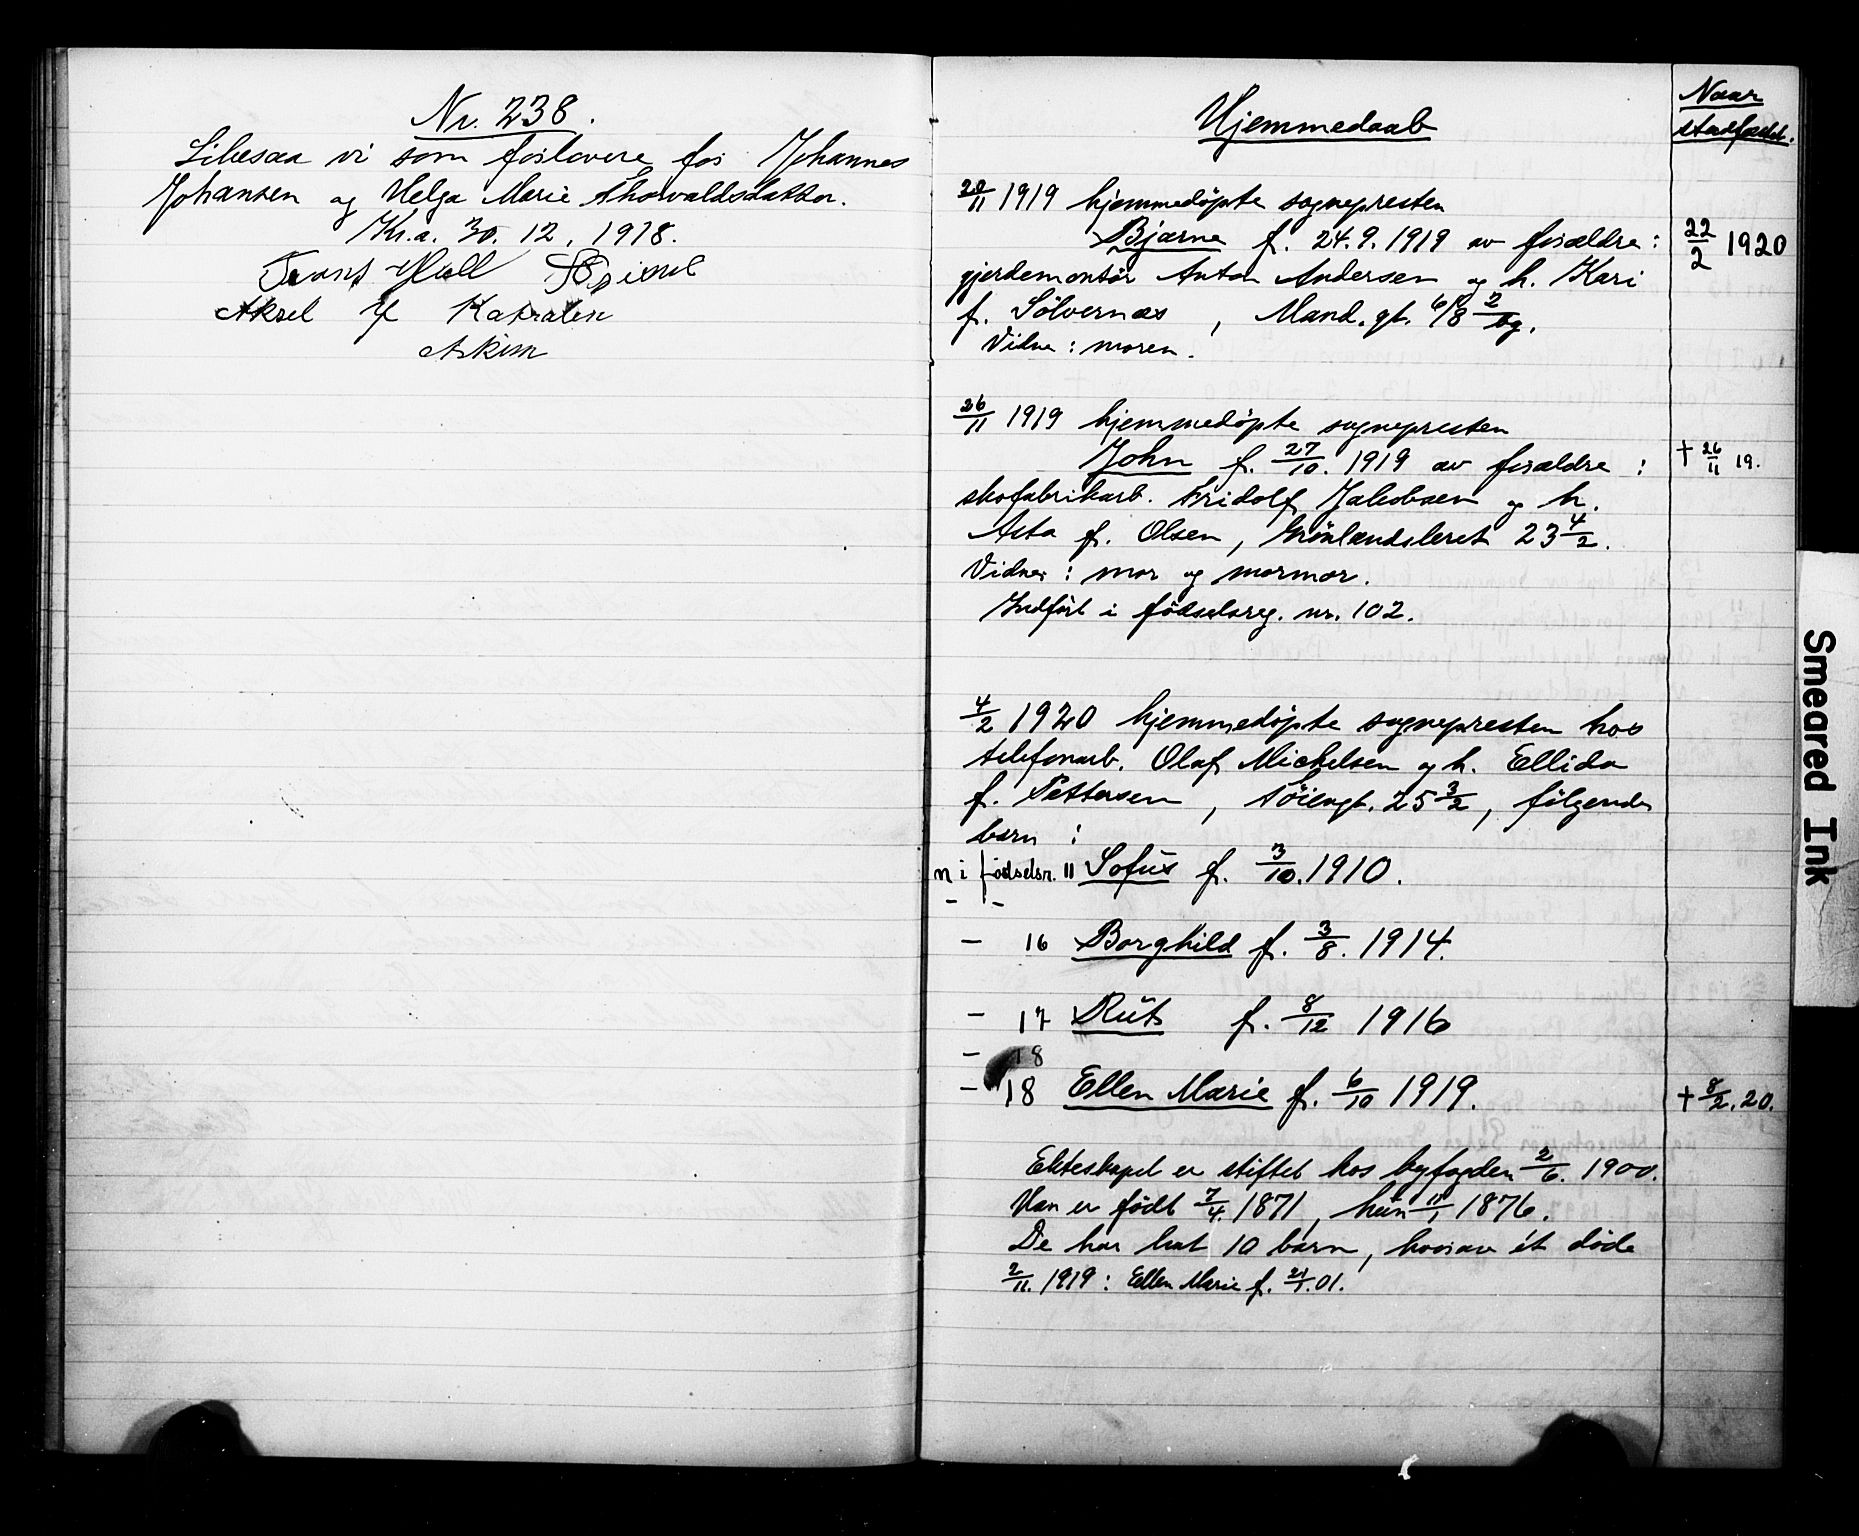 Nr. 238.
Likesaa vi som forlovere for Johannes
Johansen og Helga Marie Thorvaldsdatter.
Kr.a. 30. 12. 1918.
Aksel
Askim
Hjemmedaab
Naar
stadfæstet.
20/11 1919 hjemmedøpte sognepresten
Bjarne f. 24.9.1919 av forældre:
22/2 1920
gjerdemontør Anton Andersen og h. Kari
f. Sølvernæs, Mand.gt. 6/8 2/bg.
Vidne: moren.
26/11 1919 hjemmedøpte sognepresten
John f. 27/10. 1919 av forældre:
† 26/11 19.
skofabrikarb. Fridolf Jakobsen og h.
Asta f. Olsen, Grønlandsleret 23 4/2.
Vidner: mor og mormor.
Indført i fødselsreg. nr. 102.
4/2 1920 hjemmedøpte sognepresten hos
telefonarb. Olaf Michelsen og h. Ellida
f. Pettersen, Tøiengt. 25 3/2, følgende
barn:
n i fødselsr. 11 Sofus f. 3/10. 1910.
- -
- 16 Borghild f. 3/8. 1914.
- 17 Rut f. 8/12 1916
- 18
- 18 Ellen Marie f. 6/10 1919.
† 8/2. 20.
Ekteskapet er stiftet hos byfogden 2/6. 1900.
Han er født 7/4. 1871, hun 11/1 1876.
De har hat 10 barn, hvorav ét døde
2/11. 1919: Ellen Marie f. 21/1. 01.
Smeared Ink